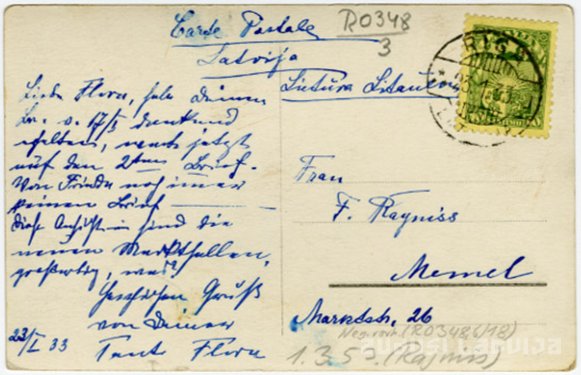 Carte Postale
R0348
3
Latvija
Lietuva Litauen
RIGA
Liebe Flora, habe Deinen
Br. v. 17/I dankend
erhalten, warte jetzt
auf den 2ten Brief.
Von Frieda noch immer
keinen Brief
Diese Ansichten sind die
neuen Markthallen,
großartig, was?
Herzlichen Gruß
von Deiner
Tante Flora
22/I 33
Frau
F. Rayniss
Memel
Marktstr. 26
(R03486/18)
1.3.57. (Rajniss)
ZUDUSI LATVIJA